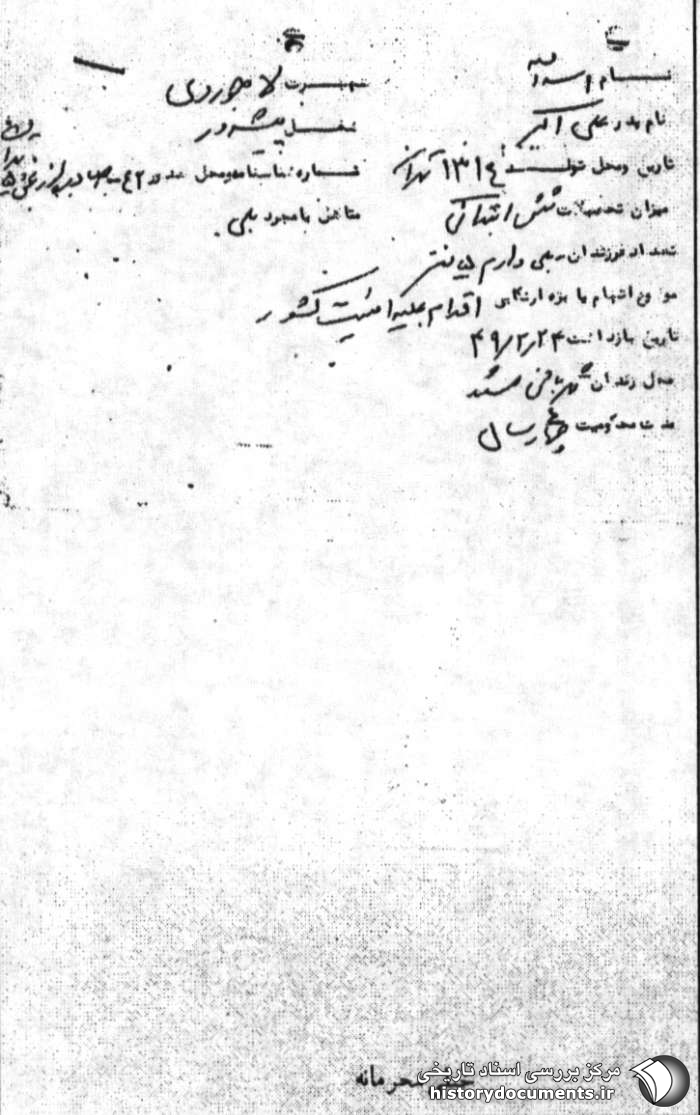 نام اسدالله شهرت لاجوردی
نام پدر علی اکبر شغل پیشه ور
تاریخ ومحل تولد ۱۳۱۴ تهران شماره شناسنامه ومحل صدور
میزان تحصیلات شش ابتدائی متاهل یا مجرد بلی
تعداد فرزندان بلی دارم ۵ نفر
موضوع اتهام یا بزه ارتکابی اقدام علیه امنیت کشور
تاریخ بازداشت ۴۹/۲/۲۴
محل زندان
مدت محکومیت چهار سال
محرمانه
مرکز بررسی اسناد تاریخی
historydocuments.ir